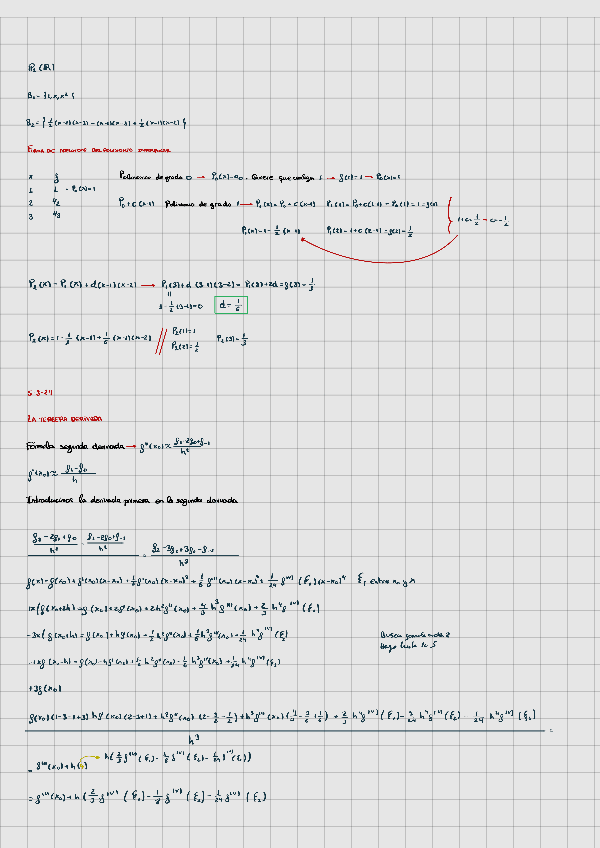 P₂(ℝ)
B₁ = {1, x, x²}
B₂ = { 1/2 (x-2)(x-3) - (x-1)(x-3) + 1/2 (x-1)(x-2) }
x f Polinomio de grado 0 → P₀(x) = a₀. Quiere que contiga 1 → f(1) = 1 → P₀(x) = 1
1 1 - P₀(x) = 1
2 1/2 P₀ + c(x-1) Polinomio de grado 1 → P₁(x) = P₀ + c(x-1) P₁(1) = P₀ + c(1-1) = P₀(1) = 1 = f(1)
3 1/3 P₁(x) = 1 - 1/2 (x-1) P₁(2) = 1 + c(2-1) = f(2) = 1/2 1 + c = 1/2 → c = -1/2
P₂(x) = P₁(x) + d(x-1)(x-2) → P₁(3) + d(3-1)(3-2) = P₁(3) + 2d = f(3) = 1/3
1 - 1/2 (3-1) = 0 d = 1/6
P₂(x) = 1 - 1/2 (x-1) + 1/6 (x-1)(x-2) // P₂(1) = 1 P₂(3) = 1/3
P₂(2) = 1/2
S 3-24
LA TERCERA DERIVADA
Fórmula segunda derivada → f''(x₀) ≈ (f₁ - 2f₀ + f₋₁)/h²
f'(x₀) ≈ (f₁ - f₀)/h
Introducimos la derivada primera en la segunda derivada
((f₂ - 2f₁ + f₀)/h² - (f₁ - 2f₀ + f₋₁)/h²)/h = (f₂ - 3f₁ + 3f₀ - f₋₁)/h³
f(x) = f(x₀) + f'(x₀)(x-x₀) + 1/2 f''(x₀)(x-x₀)² + 1/6 f'''(x₀)(x-x₀)³ + 1/24 f^(IV)(ξ₁)(x-x₀)⁴ ξ₁ entre x₀ y x
1x{ f(x₀+2h) = f(x₀) + 2f'(x₀) + 2h²f''(x₀) + 4/3 h³ f'''(x₀) + 2/3 h⁴ f^(IV)(ξ₁)
-3x{ f(x₀+h) = f(x₀) + hf'(x₀) + 1/2 h²f''(x₀) + 1/6 h³f'''(x₀) + 1/24 h⁴ f^(IV)(ξ₂)
-1x f(x₀-h) = f(x₀) - hf'(x₀) + 1/2 h²f''(x₀) - 1/6 h³f'''(x₀) + 1/24 h⁴ f^(IV)(ξ₃)
+3f(x₀)
f(x₀)(1-3-1+3) hf'(x₀)(2-3+1) + h²f''(x₀)(2 - 3/2 - 1/2) + h³f'''(x₀)(4/3 - 3/6 + 1/6) + 2/3 h⁴f^(IV)(ξ₁) - 3/24 h⁴f^(IV)(ξ₂) - 1/24 h⁴f^(IV)(ξ₃)
h³
= f'''(x₀) + h( ) → h(2/3 f^(IV)(ξ₁) - 1/8 f^(IV)(ξ₂) - 1/24 f^(IV)(ξ₃))
= f'''(x₀) + h (2/3 f^(IV)(ξ₁) - 1/8 f^(IV)(ξ₂) - 1/24 f^(IV)(ξ₃)